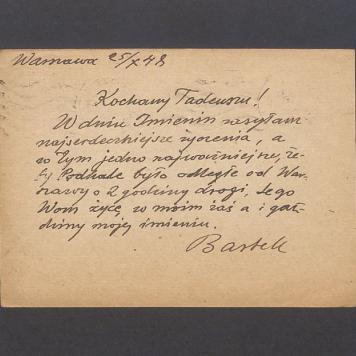 Warszawa 25/X 48
Kochany Tadeuszu!
W dniu Imienin zasyłam
najserdeczniejsze życzenia, a
w tym jedno najważniejsze, że-
by Podhale było odległe od War-
szawy o 2 godziny drogi, tego
Wam życzę w moim zaś a i
mojej imieniu.
Bartek